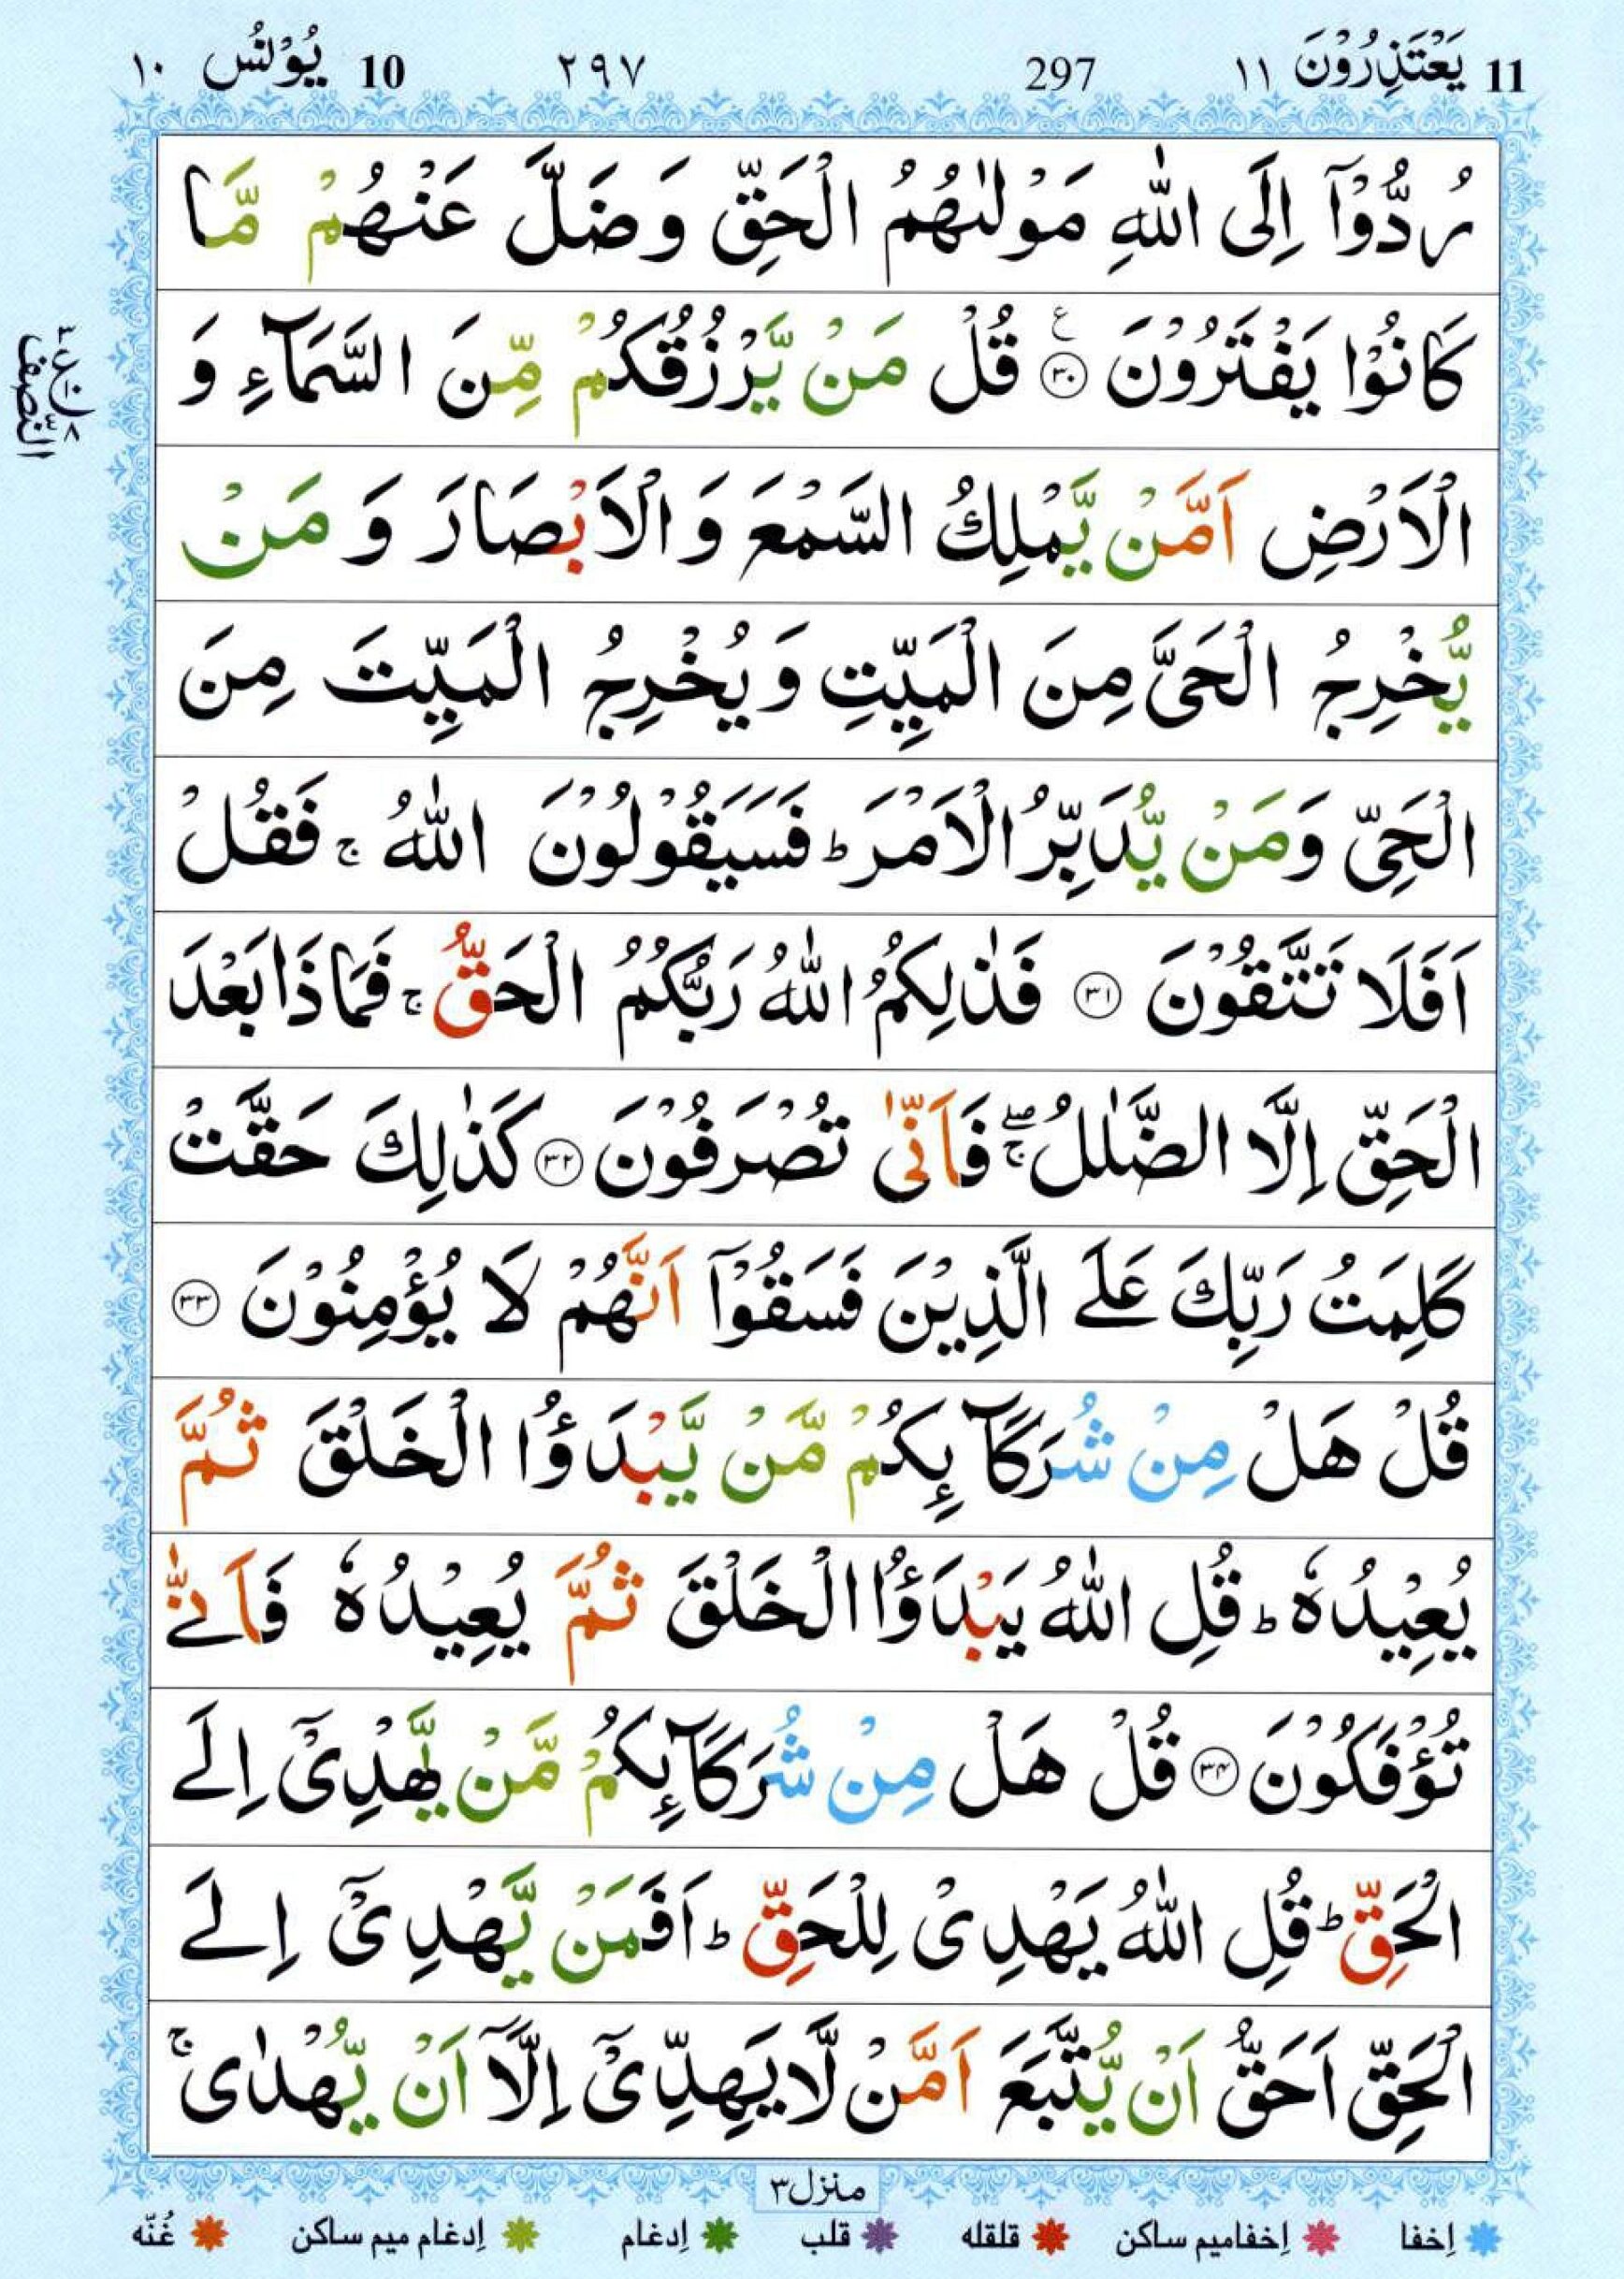 11 یَعْتَذِرُوْنَ ۱۱ 297 ۲۹۷ 10 یُوْنُس ۱۰
رُدُّوْۤا اِلَی اللّٰهِ مَوْلٰىهُمُ الْحَقِّ وَ ضَلَّ عَنْهُمْ مَّا
كَانُوْا یَفْتَرُوْنَ ۳۰ ع قُلْ مَنْ یَّرْزُقُكُمْ مِّنَ السَّمَآءِ وَ
الْاَرْضِ اَمَّنْ یَّمْلِكُ السَّمْعَ وَ الْاَبْصَارَ وَ مَنْ
یُّخْرِجُ الْحَیَّ مِنَ الْمَیِّتِ وَ یُخْرِجُ الْمَیِّتَ مِنَ
الْحَیِّ وَ مَنْ یُّدَبِّرُ الْاَمْرَ ؕ فَسَیَقُوْلُوْنَ اللّٰهُ ۚ فَقُلْ
اَفَلَا تَتَّقُوْنَ ۳۱ فَذٰلِكُمُ اللّٰهُ رَبُّكُمُ الْحَقُّ ۚ فَمَا ذَا بَعْدَ
الْحَقِّ اِلَّا الضَّلٰلُ ۖۚ فَاَنّٰی تُصْرَفُوْنَ ۳۲ كَذٰلِكَ حَقَّتْ
كَلِمَتُ رَبِّكَ عَلَی الَّذِیْنَ فَسَقُوْۤا اَنَّهُمْ لَا یُؤْمِنُوْنَ ۳۳
قُلْ هَلْ مِنْ شُرَكَآىِٕكُمْ مَّنْ یَّبْدَؤُا الْخَلْقَ ثُمَّ
یُعِیْدُهٗ ؕ قُلِ اللّٰهُ یَبْدَؤُا الْخَلْقَ ثُمَّ یُعِیْدُهٗ فَاَنّٰی
تُؤْفَكُوْنَ ۳۴ قُلْ هَلْ مِنْ شُرَكَآىِٕكُمْ مَّنْ یَّهْدِیْۤ اِلَی
الْحَقِّ ؕ قُلِ اللّٰهُ یَهْدِیْ لِلْحَقِّ ؕ اَفَمَنْ یَّهْدِیْۤ اِلَی
الْحَقِّ اَحَقُّ اَنْ یُّتَّبَعَ اَمَّنْ لَّا یَهِدِّیْۤ اِلَّاۤ اَنْ یُّهْدٰی ۚ
النصف
منزل۳
اِخفا اِخفامیم ساکن قلقله قلب اِدغام اِدغام میم ساکن غُنّه